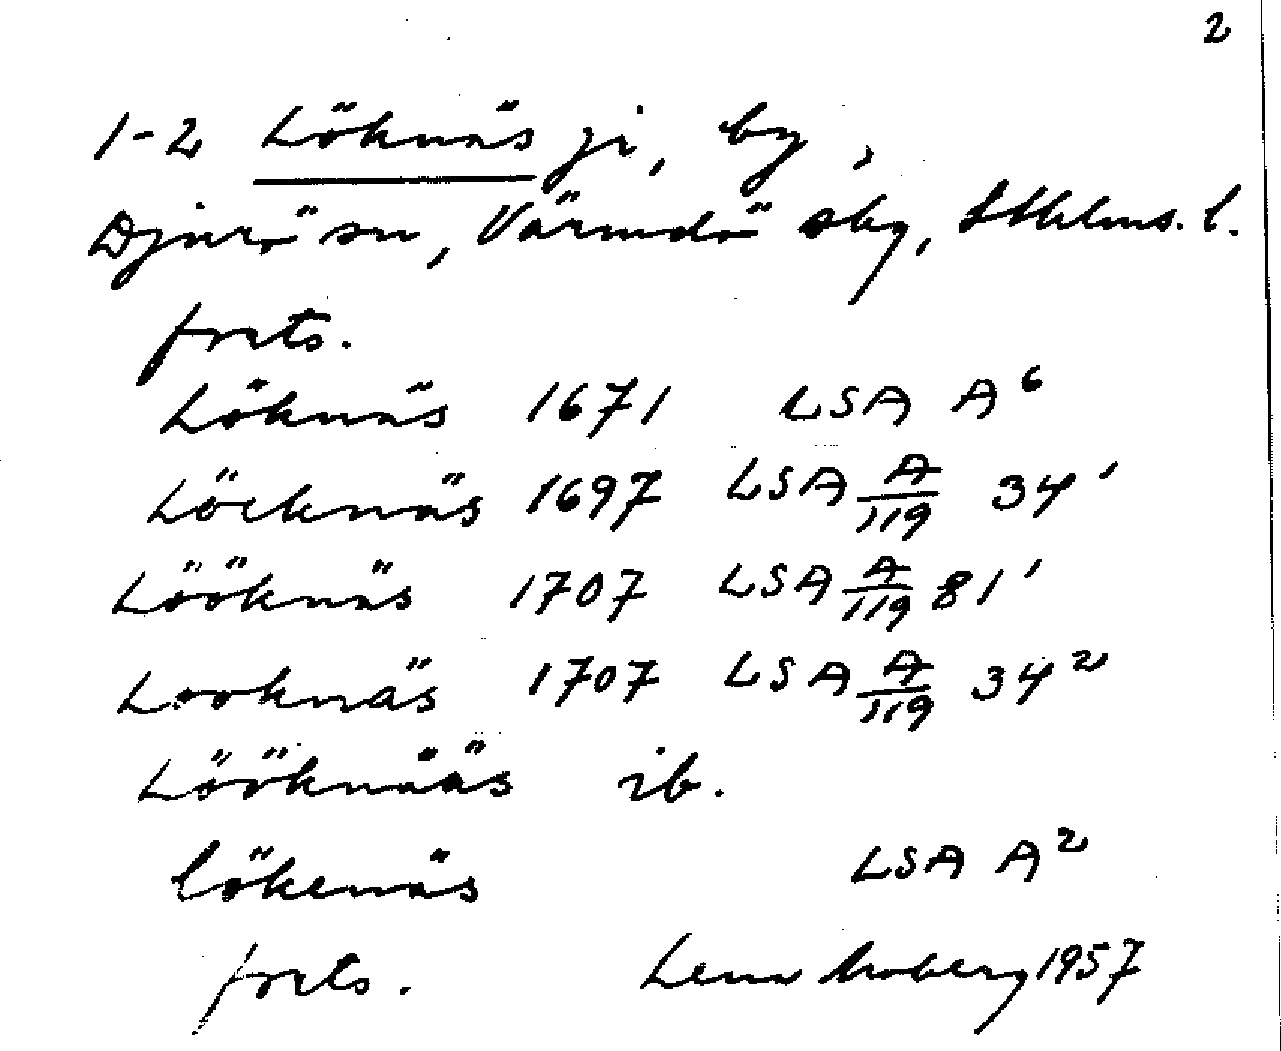 2
1-2 Löknäs ji, by,
Djurö sn, Värmdö skg, Sthlms. l.
forts.
Löknäs 1671 LSA A⁶
Löcknäs 1697 LSA A/119 34¹
Lööknäs 1707 LSA A/119 81¹
Looknäs 1707 LSA A/119 34²
Lööknääs ib.
lökenäs LSA A²
forts. Lena Moberg 1957